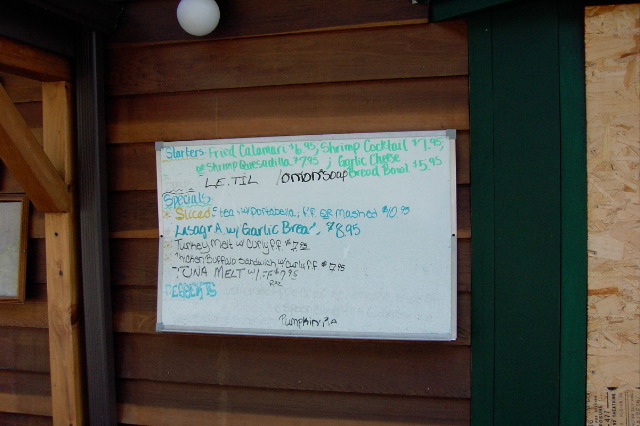 Starters: Fried Calamari $6.95, Shrimp Cocktail $7.95,
or Shrimp Quesadilla $7.95 ; Garlic Cheese
LE.TIL /onion soap Bread Bowl $5.95
Specials
Sliced Stea w/ Portabella, F.F. OR Mashed $10.95
LasagnA w/ Garlic Brea $8.95
Turkey Melt w/ Curly F.F. $7.95
hicken Buffalo Sandwich w/ Curly F.F. $7.95
TUNA MELT w/ $7.95
ESSERTS
Pumpkin